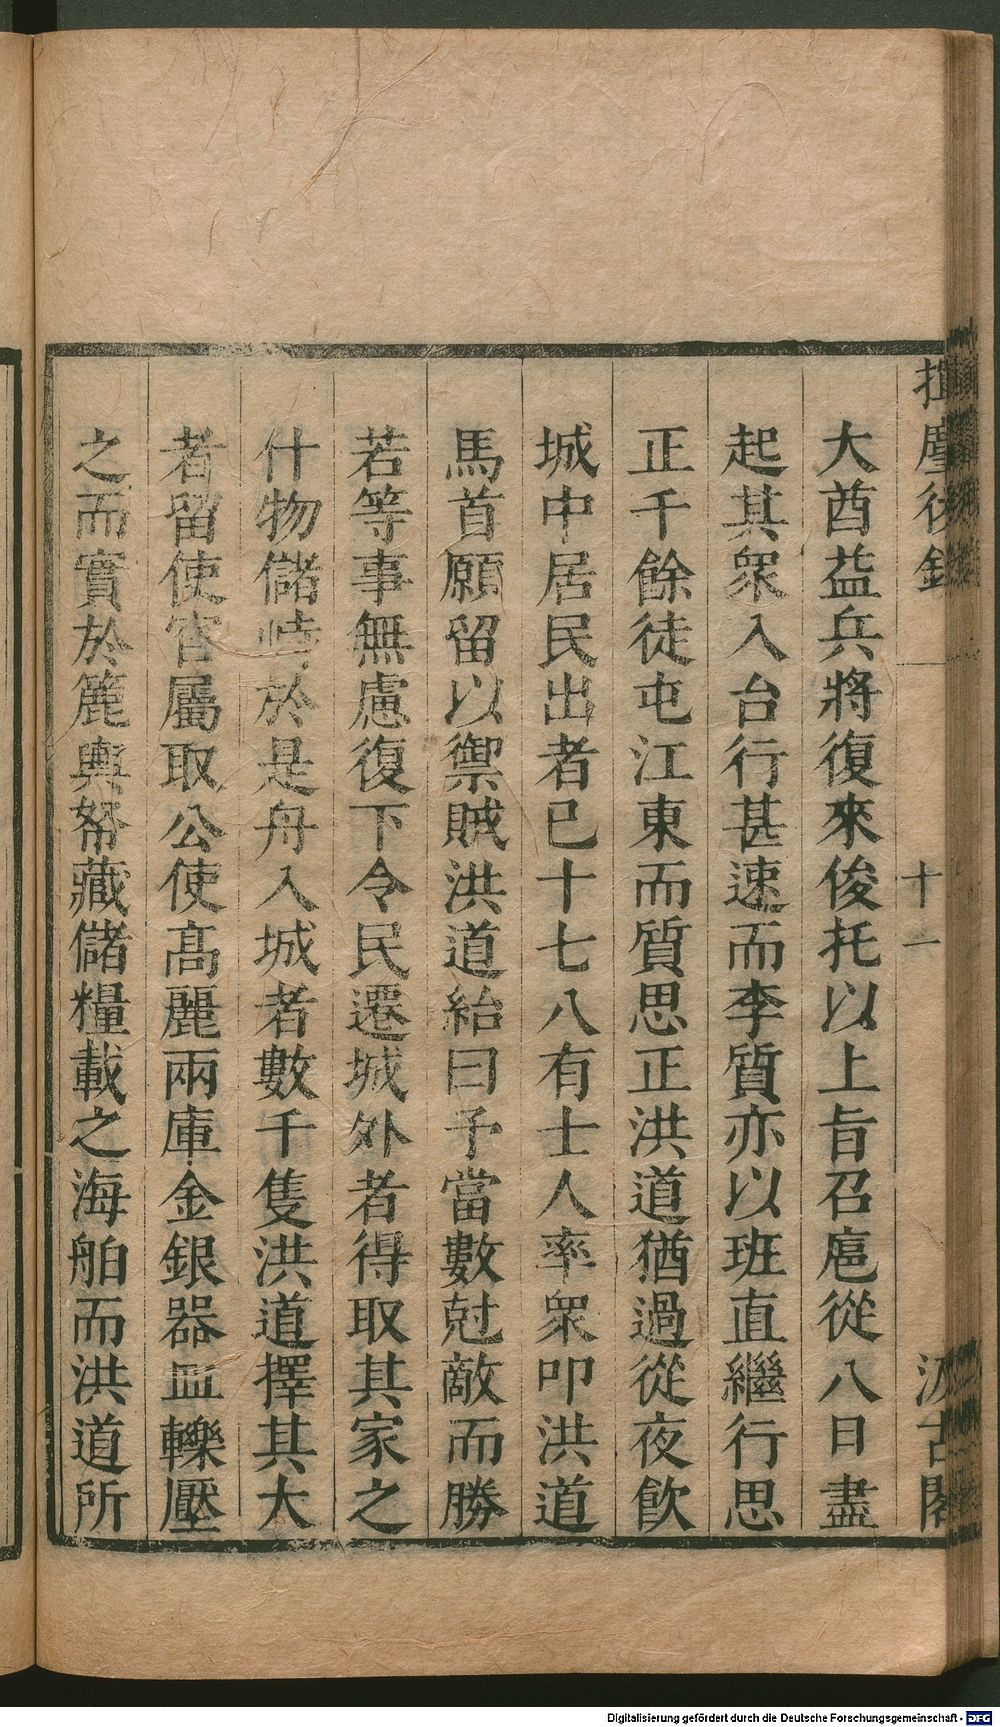 揮麈後錄
十一
汲古閣
大酋益兵將復來俊托以上旨召扈從八日盡
起其衆入台行甚速而李質亦以班直繼行思
正千餘徒屯江東而質思正洪道猶過從夜飮
城中居民出者已十七八有士人率衆叩洪道
馬首願留以禦賊洪道紿曰予當數尅敵而勝
若等事無慮復下令民遷城外者得取其家之
什物儲峙於是舟入城者數千隻洪道擇其大
者留使官屬取公使高麗兩庫金銀器皿轢壓
之而實於簏輿帑藏儲糧載之海舶而洪道所
Digitalisierung gefördert durch die Deutsche Forschungsgemeinschaft - DFG